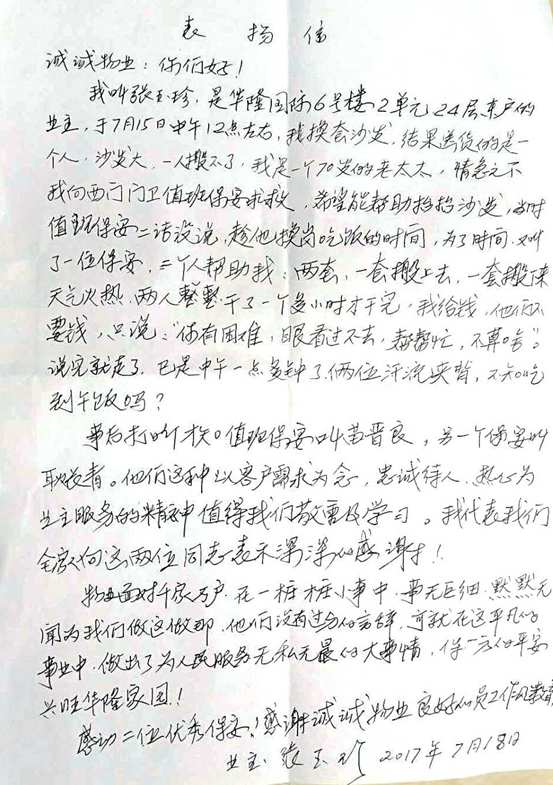 表扬信
诚诚物业：你们好！
我叫张玉珍，是华隆国际6号楼2单元24层东户的
业主，于7月15日中午12点左右，我换套沙发，结果送货的是一
个人，沙发大，一人搬不了，我是一个70岁的老太太，情急之下
我向西门门卫值班保安求救，希望能帮助抬抬沙发，当时
值班保安二话没说，趁他换岗吃饭的时间，为了时间，又叫
了一位保安，二个人帮助我：两套，一套搬上去，一套搬下来
天气火热，两人整整干了一个多小时才干完，我给钱，他们不
要钱，只说：“你有困难，眼看过不去，帮帮忙，不算啥。”
说完就走了，已是中午一点多钟了，俩位汗流夹背，不知吃
到午饭吗？
事后打听才知值班保安叫苗晋良，另一个保安叫
耿拴青。他们这种以客户需求为念，忠诚待人，热心为
业主服务的精神值得我们敬重及学习。我代表我们
全家向这两位同志表示深深的感谢！
物业面对千家万户，在一桩桩小事中，事无巨细，默默无
闻为我们做这做那，他们没有过多的言辞，可就在这平凡的
事业中，做出了为人民服务无私无畏的大事情，保一方的平安
兴旺华隆家园！
感动二位优秀保安！感谢诚诚物业良好的员工作风教育
业主：张玉珍 2017年7月18日